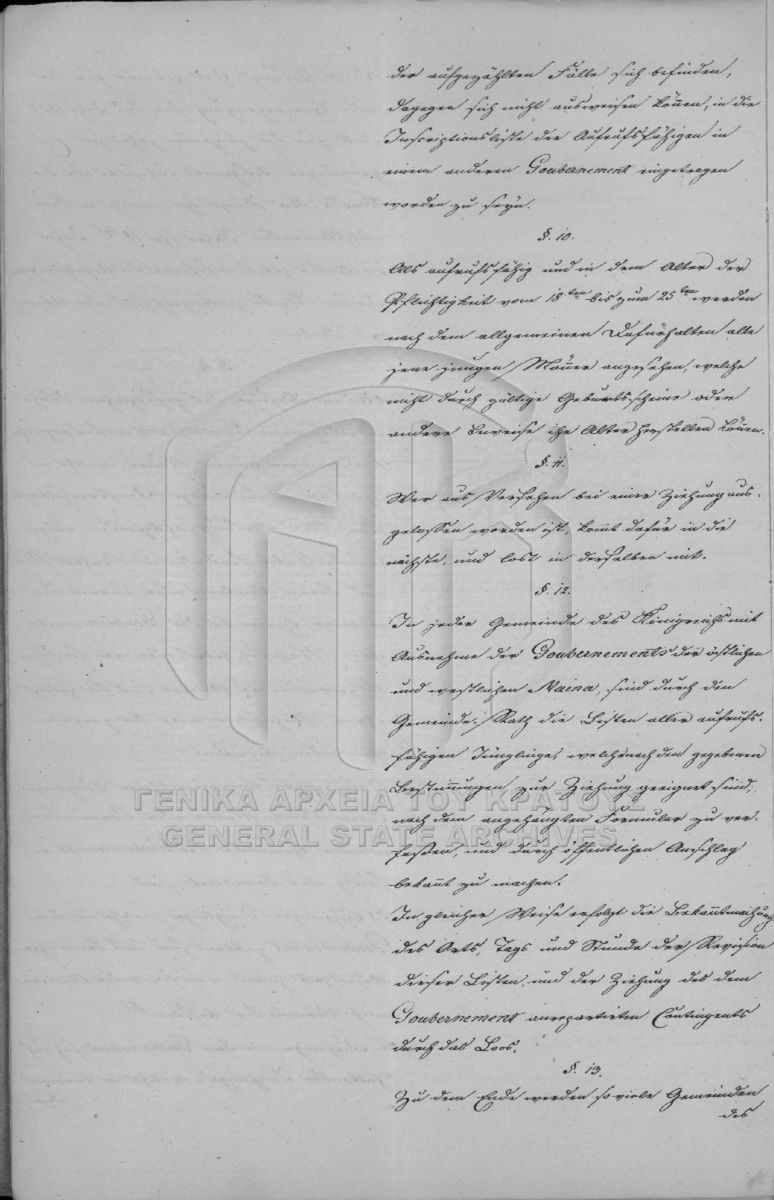 der aufgezählten Fälle sich befinden,
dagegen sich nicht ausweisen können, in die
Inscriptionsliste der Aufrufsfähigen in
einem anderem Goubernement eingetragen
worden zu seyn.
§. 10.
Als aufrufsfähig und in dem Alter der
Pflichtigkeit vom 18ten bis zum 25ten werden
nach dem allgemeinen Dafürhalten alle
jene jungen Männer angesehen, welche
nicht durch gültige Geburtsscheine oder
andere Beweise ihr Alter herstellen können.
§. 11.
Wer aus Versehen bei einer Ziehung aus-
gelassen worden ist, komt dafür in die
nächste, und lost in derselben mit.
§. 12.
In jeder Gemeinde des Königreichs mit
Ausnahme der Goubernements der östlichen
und westlichen Maina, sind durch den
Gemeinde-Rath die Listen aller aufrufs-
fähigen Jünglinge, welche nach den gegebenen
Bestimungen zur Ziehung geeignet sind,
nach dem angehängten Formular zu ver-
fassen, und durch öffentlichen Anschlag
bekant zu machen.
In gleicher Weise erfolgt die Bekantmachung
des Orts, Tags und Stunde der Revision
dieser Listen, und der Ziehung des dem
Goubernement anrepartirten Contingents
durch das Loos.
§. 13.
Zu dem Ende werden so viele Gemeinden
des
ΓΕΝΙΚΑ ΑΡΧΕΙΑ ΤΟΥ ΚΡΑΤΟΥΣ
GENERAL STATE ARCHIVES